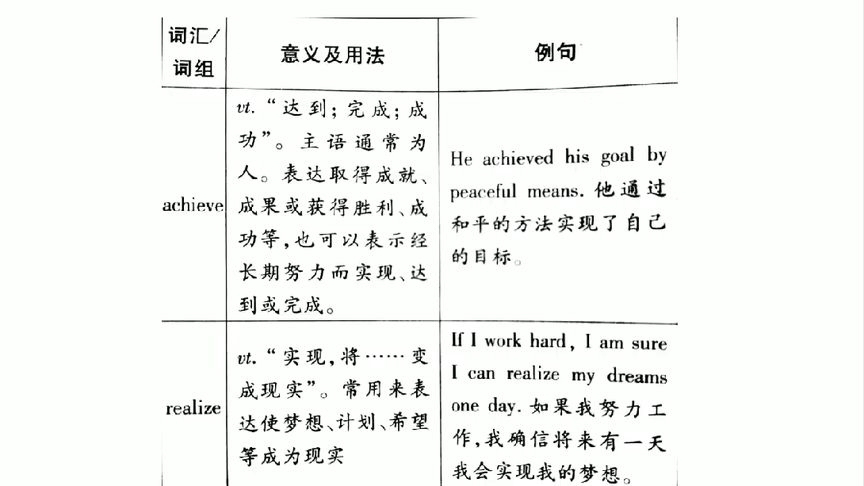 词汇/
词组
意义及用法
例句
achieve
vt. “达到；完成；成
功”。主语通常为
人。表达取得成就、
成果或获得胜利、成
功等，也可以表示经
长期努力而实现、达
到或完成。
He achieved his goal by
peaceful means. 他通过
和平的方法实现了自己
的目标。
realize
vt. “实现，将……变
成现实”。常用来表
达使梦想、计划、希望
等成为现实
If I work hard, I am sure
I can realize my dreams
one day. 如果我努力工
作，我确信将来有一天
我会实现我的梦想。